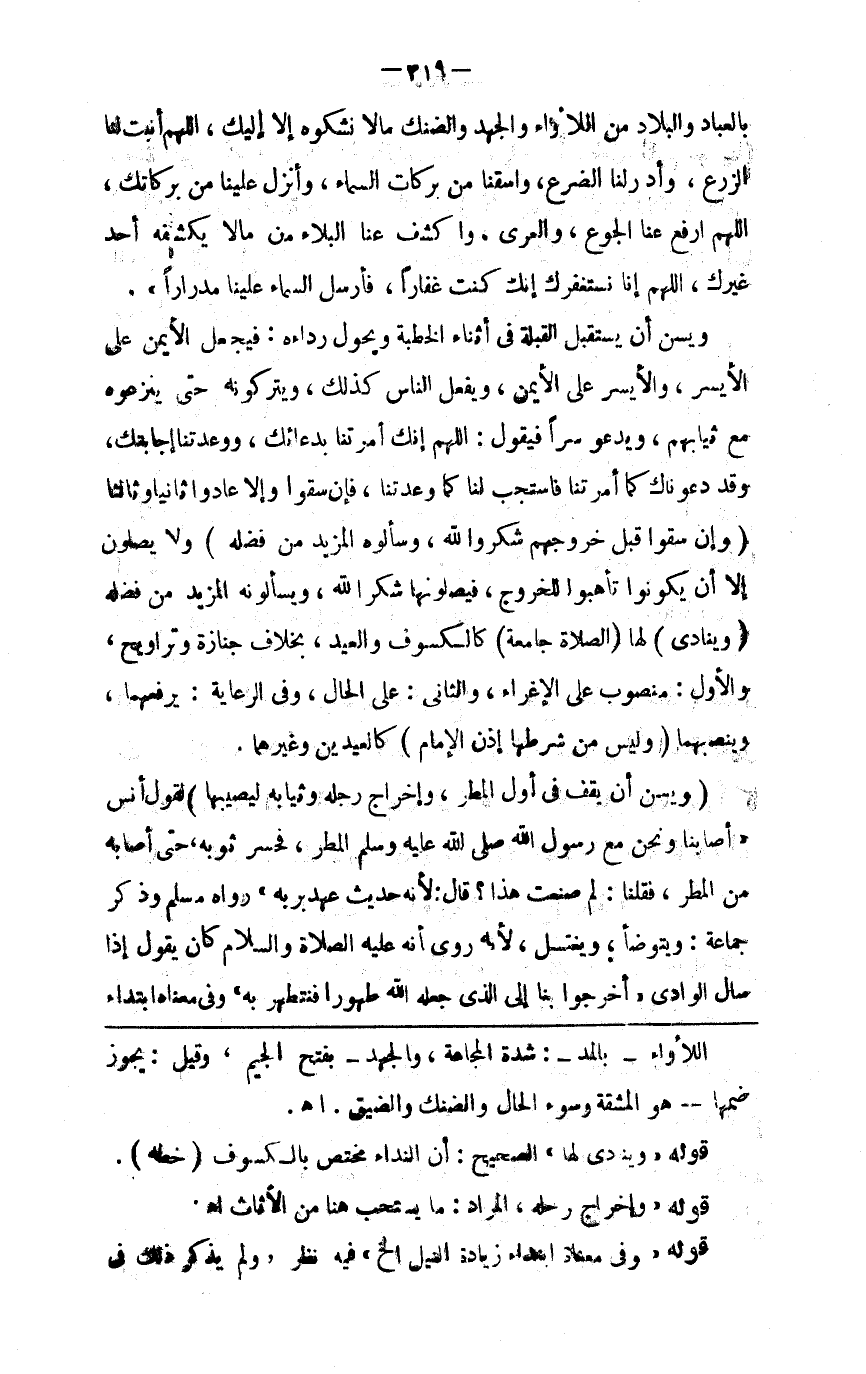 —٣١٩—
بالعباد والبلاد من اللأواء والجهد والضنك مالا نشكوه إلا إليك ، اللهم أنبت لنا
الزرع ، وأدر لنا الضرع، واسقنا من بركات السماء ، وأنزل علينا من بركاتك ،
اللهم ارفع عنا الجوع ، والعرى . واكشف عنا البلاء من مالا يكشفه أحد
غيرك ، اللهم إنا نستغفرك إنك كنت غفاراً ، فأرسل السماء علينا مدراراً » .
ويسن أن يستقبل القبلة فى أثناء الخطبة ويحول رداءه : فيجعل الأيمن على
الأيسر ، والأيسر على الأيمن ، ويفعل الناس كذلك ، ويتركونه حتى ينزعوه
مع ثيابهم ، ويدعو سراً فيقول : اللهم إنك أمرتنا بدعائك ، ووعدتنا إجابتك،
وقد دعوناك كما أمرتنا فاستجب لنا كما وعدتنا ، فإن سقوا وإلا عادوا ثانيا وثالثا
( وإن سقوا قبل خروجهم شكروا لله ، وسألوه المزيد من فضله ) ولا يصلون
إلا أن يكونوا تأهبوا للخروج ، فيصلونها شكرا لله ، ويسألونه المزيد من فضله
( وينادى ) لها (الصلاة جامعة) كالكسوف والعيد ، بخلاف جنازة وتراويح ،
والأول : منصوب على الإغراء ، والثانى : على الحال ، وفى الرعاية : يرفعهما ،
وينصبهما ( وليس من شرطها إذن الإمام ) كالعيدين وغيرهما .
( ويسن أن يقف فى أول المطر ، وإخراج رحله وثيابه ليصيبها ) لقول أنس
« أصابنا ونحن مع رسول الله صلى الله عليه وسلم المطر ، فحسر ثوبه ، حتى أصابه
من المطر ، فقلنا : لم صنعت هذا ؟ قال: لأنه حديث عهد بربه » رواه مسلم وذكر
جماعة : ويتوضأ ؛ ويغتسل ، لأنه روى أنه عليه الصلاة والسلام كان يقول إذا
سال الوادى « أخرجوا بنا إلى الذى جعله الله طهورا فنتطهر به » وفى معناه ابتداء
اللأواء – بالمد – : شدة المجاعة ، والجهد – بفتح الجيم ، وقيل : يجوز
ضمها -- هو المشقة وسوء الحال والضنك والضيق . اه .
قوله « وينادى لها » الصحيح : أن النداء مختص بالكسوف ( خطه ) .
قوله « وإخراج رحله ، المراد : ما يستحب هنا من الأثاث اه .
قوله « وفى معناه ابتداء زيادة النيل الخ » فيه نظر ، ولم يذكر ذلك فى